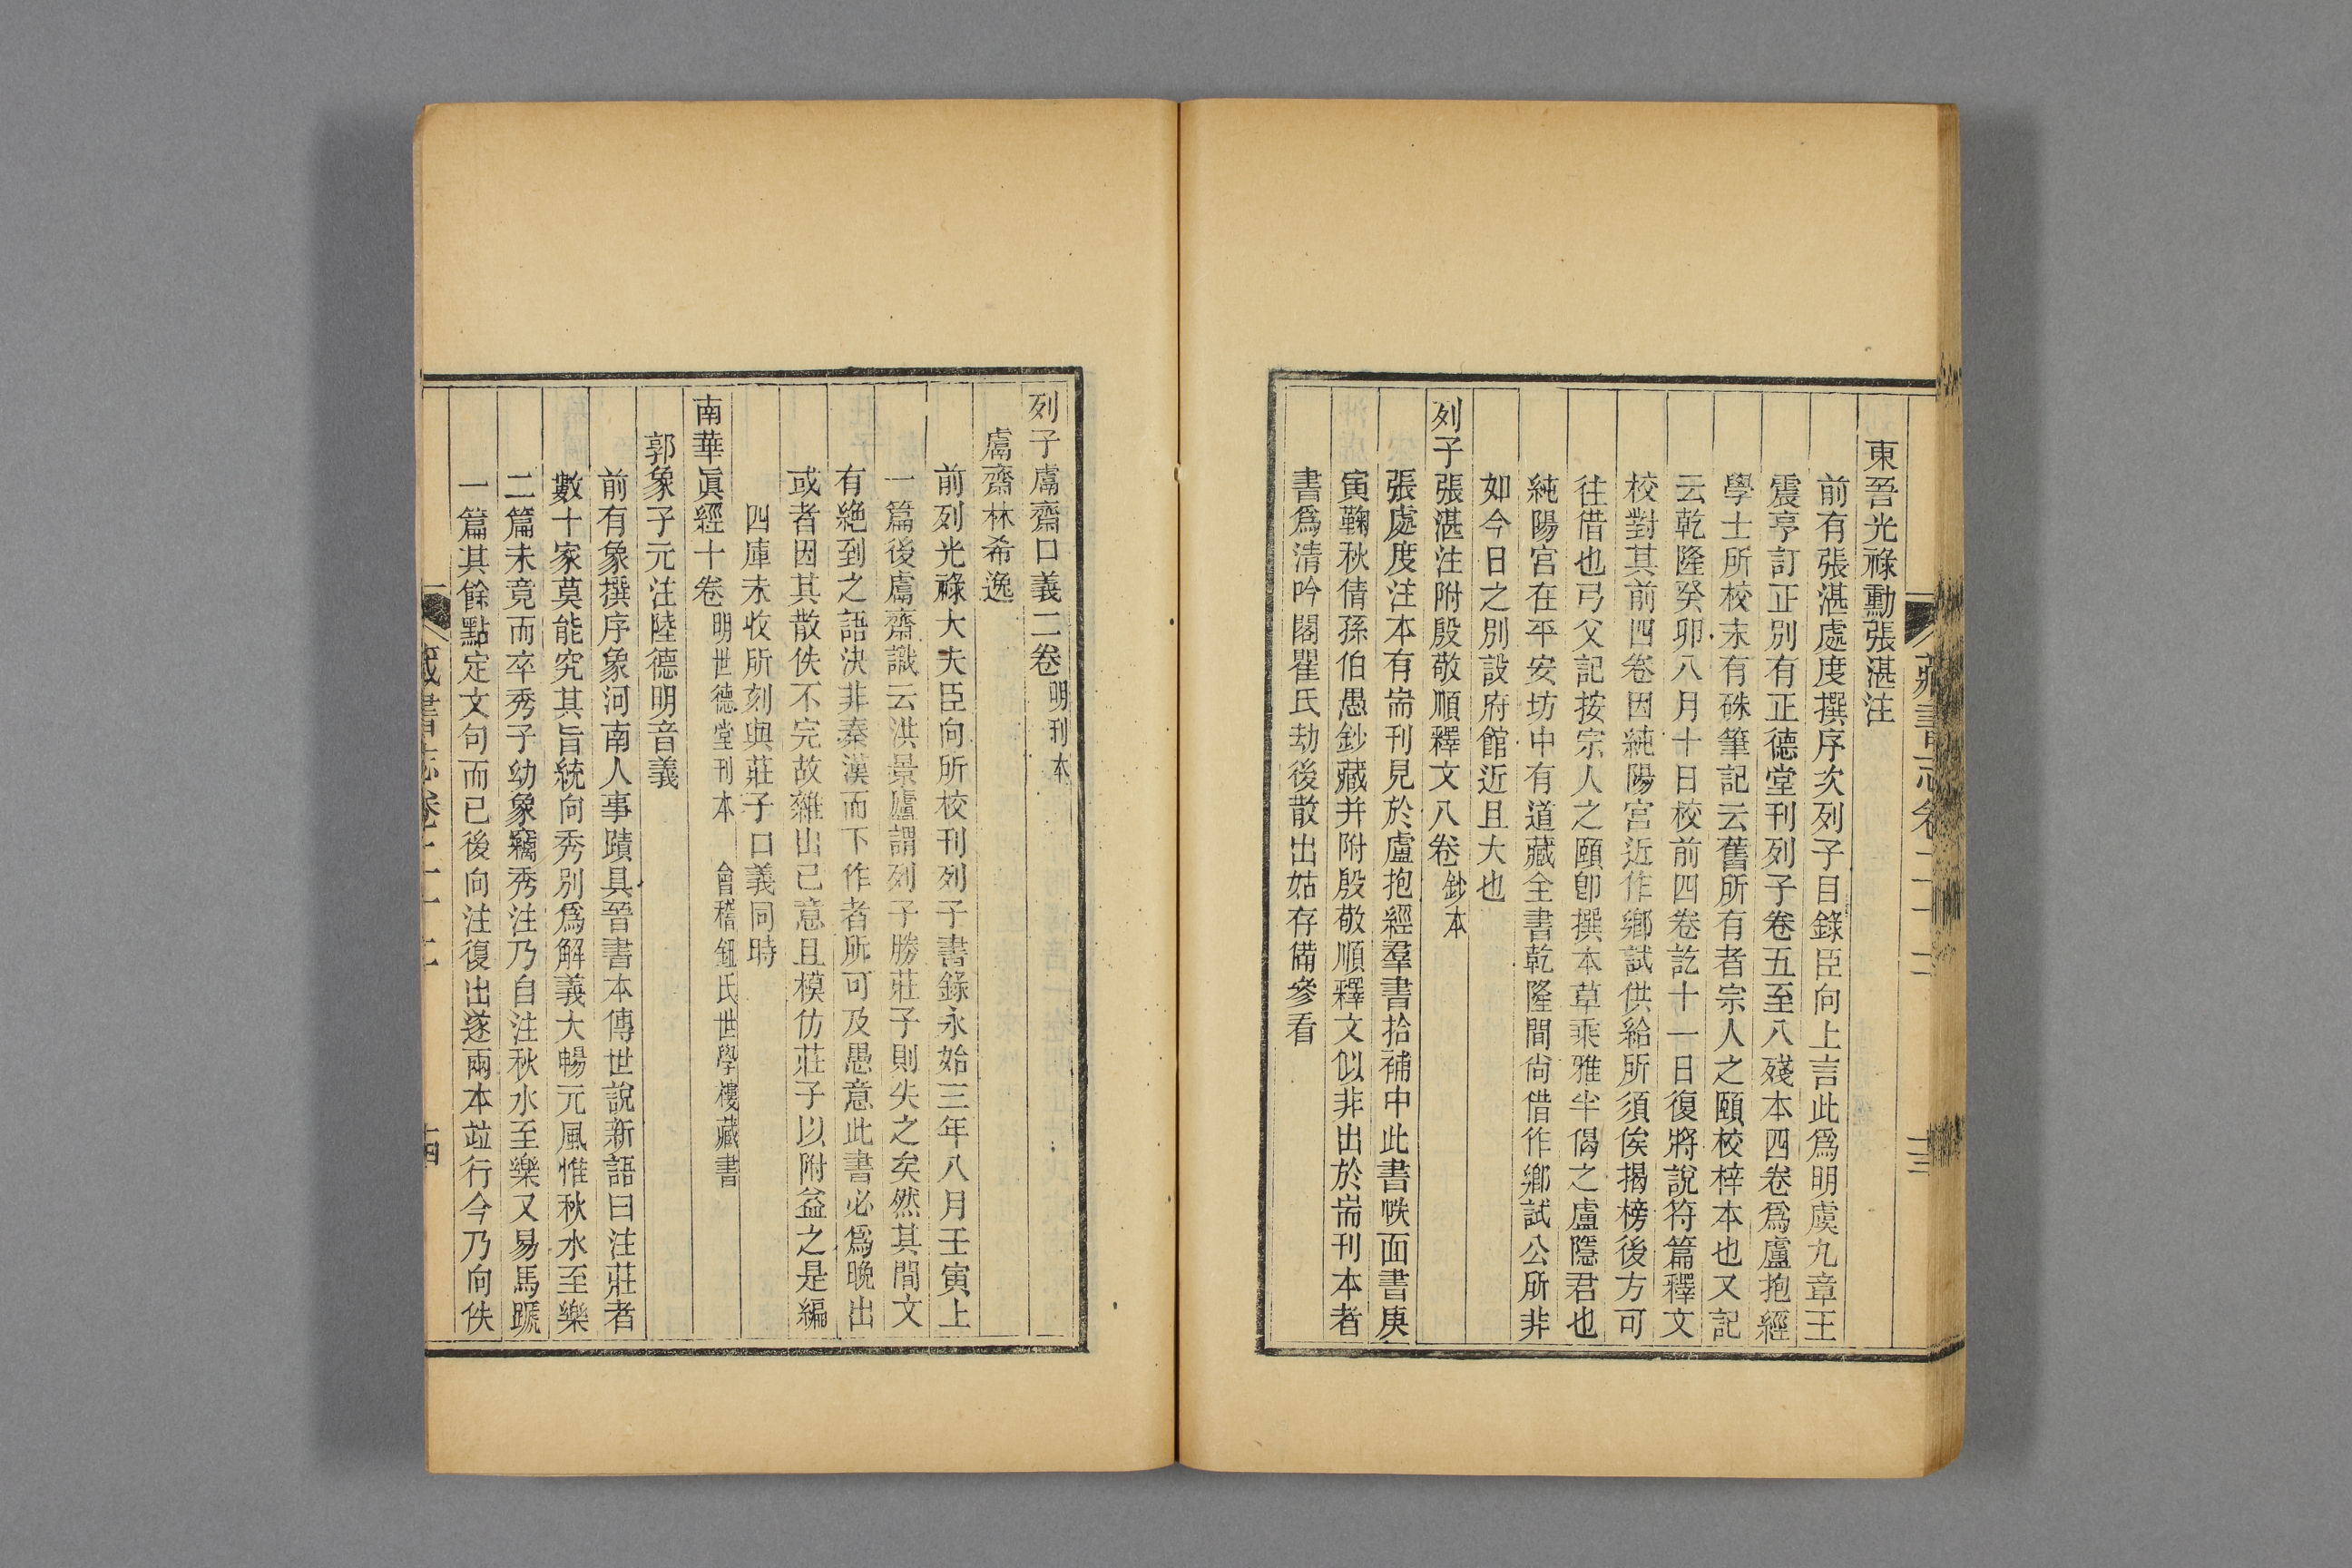 東晉光祿勳張湛注
前有張湛處度撰序次列子目錄臣向上言此爲明虞九章王
震亨訂正別有正德堂刊列子卷五至八殘本四卷爲盧抱經
學士所校末有硃筆記云舊所有者宗人之頤校梓本也又記
云乾隆癸卯八月十日校前四卷訖十一日復將說符篇釋文
校對其前四卷因純陽宮近作鄉試供給所須俟揭榜後方可
往借也弓父記按宗人之頤卽撰本草乘雅半偈之盧隱君也
純陽宮在平安坊中有道藏全書乾隆間尙借作鄉試公所非
如今日之別設府館近且大也
列子張湛注附殷敬順釋文八卷 鈔本
張處度注本有耑刊見於盧抱經羣書拾補中此書帙面書庚
寅鞠秋倩孫伯愚鈔藏并附殷敬順釋文似非出於耑刊本者
書爲清吟閣瞿氏劫後散出姑存備參看
列子鬳齋口義二卷 明刊本
鬳齋林希逸
前列光祿大夫臣向所校刊列子書錄永始三年八月壬寅上
一篇後鬳齋識云洪景廬謂列子勝莊子則失之矣然其間文
有絶到之語決非秦漢而下作者所可及愚意此書必爲晚出
或者因其散佚不完故雜出己意且模仿莊子以附益之是編
四庫未收所刻與莊子口義同時
南華眞經十卷 明世德堂刊本 會稽鈕氏世學樓藏書
郭象子元注陸德明音義
前有象撰序象河南人事蹟具晉書本傳世說新語曰注莊者
數十家莫能究其旨統向秀別爲解義大暢元風惟秋水至樂
二篇未竟而卒秀子幼象竊秀注乃自注秋水至樂又易馬蹏
一篇其餘點定文句而已後向注復出遂兩本竝行今乃向佚